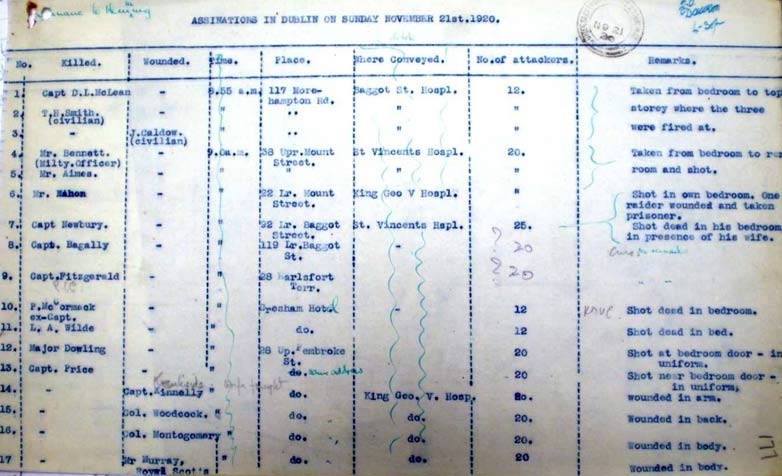 ASSINATIONS IN DUBLIN ON SUNDAY NOVEMBER 21st.1920.
No. Killed. Wounded. Time. Place. Where Conveyed. No.of attackers. Remarks.
1. Capt D.L.McLean - 8.55 a.m. 117 More- Baggot St. Hospl. 12. Taken from bedroom to top
hampton Rd.
2. T.H.Smith. - " " " " storey where the three
(civilian)
3. - J.Caldow. " " " " were fired at.
(civilian)
4. Mr. Bennett. - 9.0a.m. 38 Upr.Mount St Vincents Hospl. 20. Taken from bedroom to rear
(Milty.Officer) Street.
5. Mr. Aimes. - " " " " room and shot.
6. Mr. Mahon - " 22 Lr. Mount King Geo V Hospl. Shot in own bedroom. One
Street. raider wounded and taken
prisoner.
7. Capt Newbury. - " 92 Lr. Baggot St. Vincents Hspl. 25. Shot dead in his bedroom
Street. in presence of his wife.
8. Capt. Bagally - " 119 Lr.Baggot - ? 20
St.
9. Capt.Fitzgerald - " 28 Earlsfort ? 20
Terr.
10. P.McCormack - " Gresham Hotel - 12 Shot dead in bedroom.
ex-Capt.
11. L. A. Wilde - " do. 12 Shot dead in bed.
12. Major Dowling - " 28 Up.Pembroke 20 Shot at bedroom door - in
St. uniform.
13. Capt. Price - " do. same address 20 Shot near bedroom door -
in uniform,
14. - Capt. Kinnelly " do. King Geo. V. Hosp. 20. wounded in arm.
15. - Col. Woodcock. " do. do. 20. Wounded in back.
16. - Col. Montogomery " do. do. 20. Wounded in body.
17 - Mr Murray, " do. do. 20 Wounded in body.
Royal Scot's